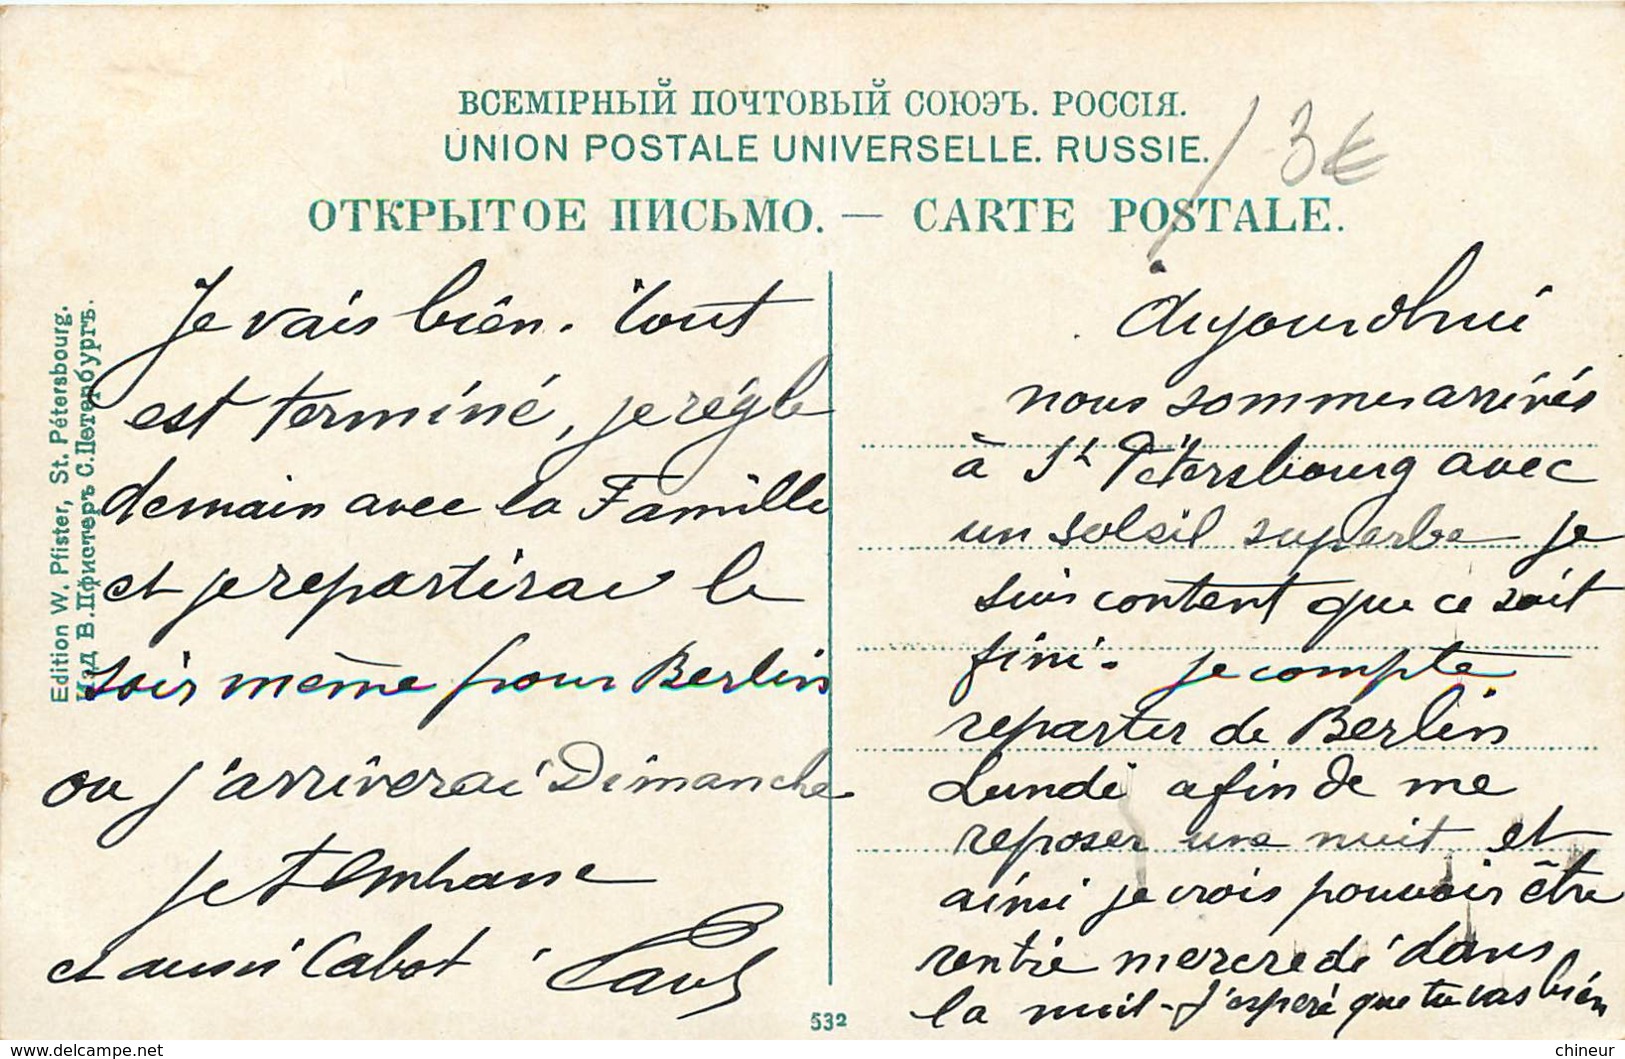 ВСЕМІРНЫЙ ПОЧТОВЫЙ СОЮЭЪ. РОССІЯ.
UNION POSTALE UNIVERSELLE. RUSSIE.
3€
ОТКРЫТОЕ ПИСЬМО. — CARTE POSTALE.
Edition W. Pfister, St. Pétersbourg.
Изд В. Пфистеръ С. Петербургъ.
Je vais bien. Tout
est terminé, je règle
demain avec la Famille
et je repartirai le
soir même pour Berlin
ou j'arriverai Dimanche
Je t'embrasse
et aussi Cabot
Paul
Aujourdhui
nous sommes arrivés
à St Pétersbourg avec
un soleil superbe je
suis content que ce soit
fini. je compte
repartir de Berlin
Lundi afin de me
reposer une nuit et
ainsi je crois pouvoir être
rentré mercredi dans
la nuit - J'espère que tu vas bien
532
chineur